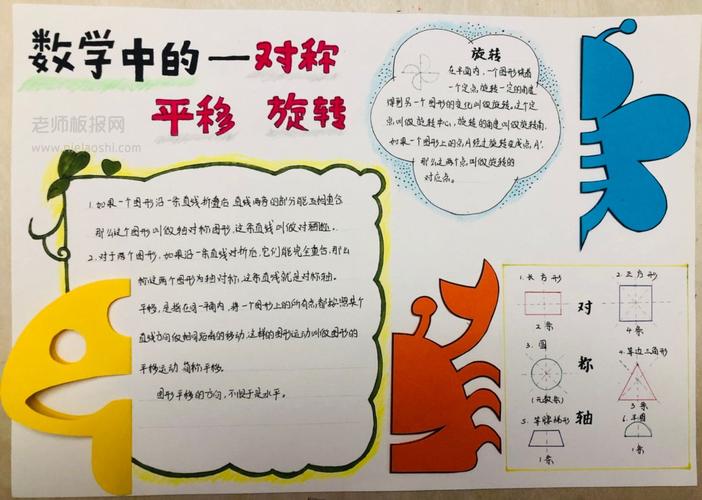 数学中的—对称
平移 旋转
老师板报网
旋转
在平面内,一个图形绕着
一个定点,旋转一定的角度
得到另一个图形的变化叫做旋转,这个定
点叫做旋转中心,旋转的角度叫做旋转角,
如果一个图形上的点A经过旋转变成点A',
那么这两个点叫做旋转的
对应点。
1.如果一个图形沿一条直线折叠后,直线两旁的部分能互相重合
那么这个图形叫做轴对称图形,这条直线叫做对称轴。
2.对于两个图形,如果沿一条直线对折后,它们能完全重合,那么
称这两个图形为轴对称,这条直线就是对称轴。
平移,是指在同一平面内,将一个图形上的所有点都按照某个
直线方向做相同距离的移动,这样的图形运动叫做图形的
平移运动,简称平移。
图形平移的方向,不限于是水平。
对称轴
1.长方形
2条
2.正方形
4条
3.圆
(无数条)
4.等边三角形
3条
5.等腰梯形
1条
6.半圆
1条